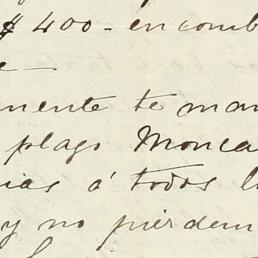 $400- en comb
e
mente te man
plago Monca
ias á todos l
y no pierdem